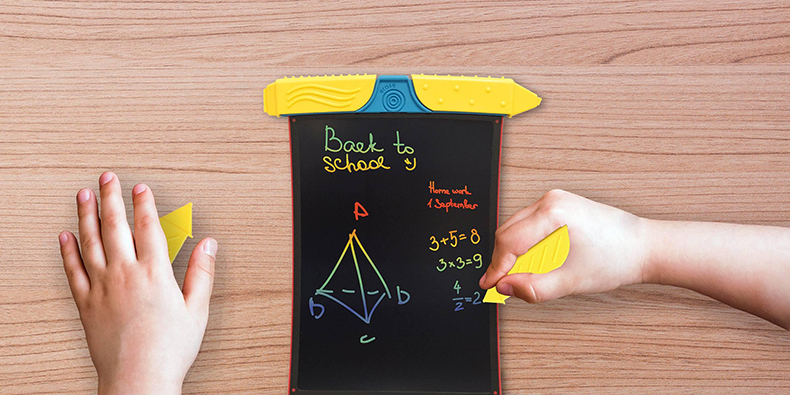 erase
Back to
school
Home work
1 September
A
3+5=8
3×3=9
4
2 =2
B D
C